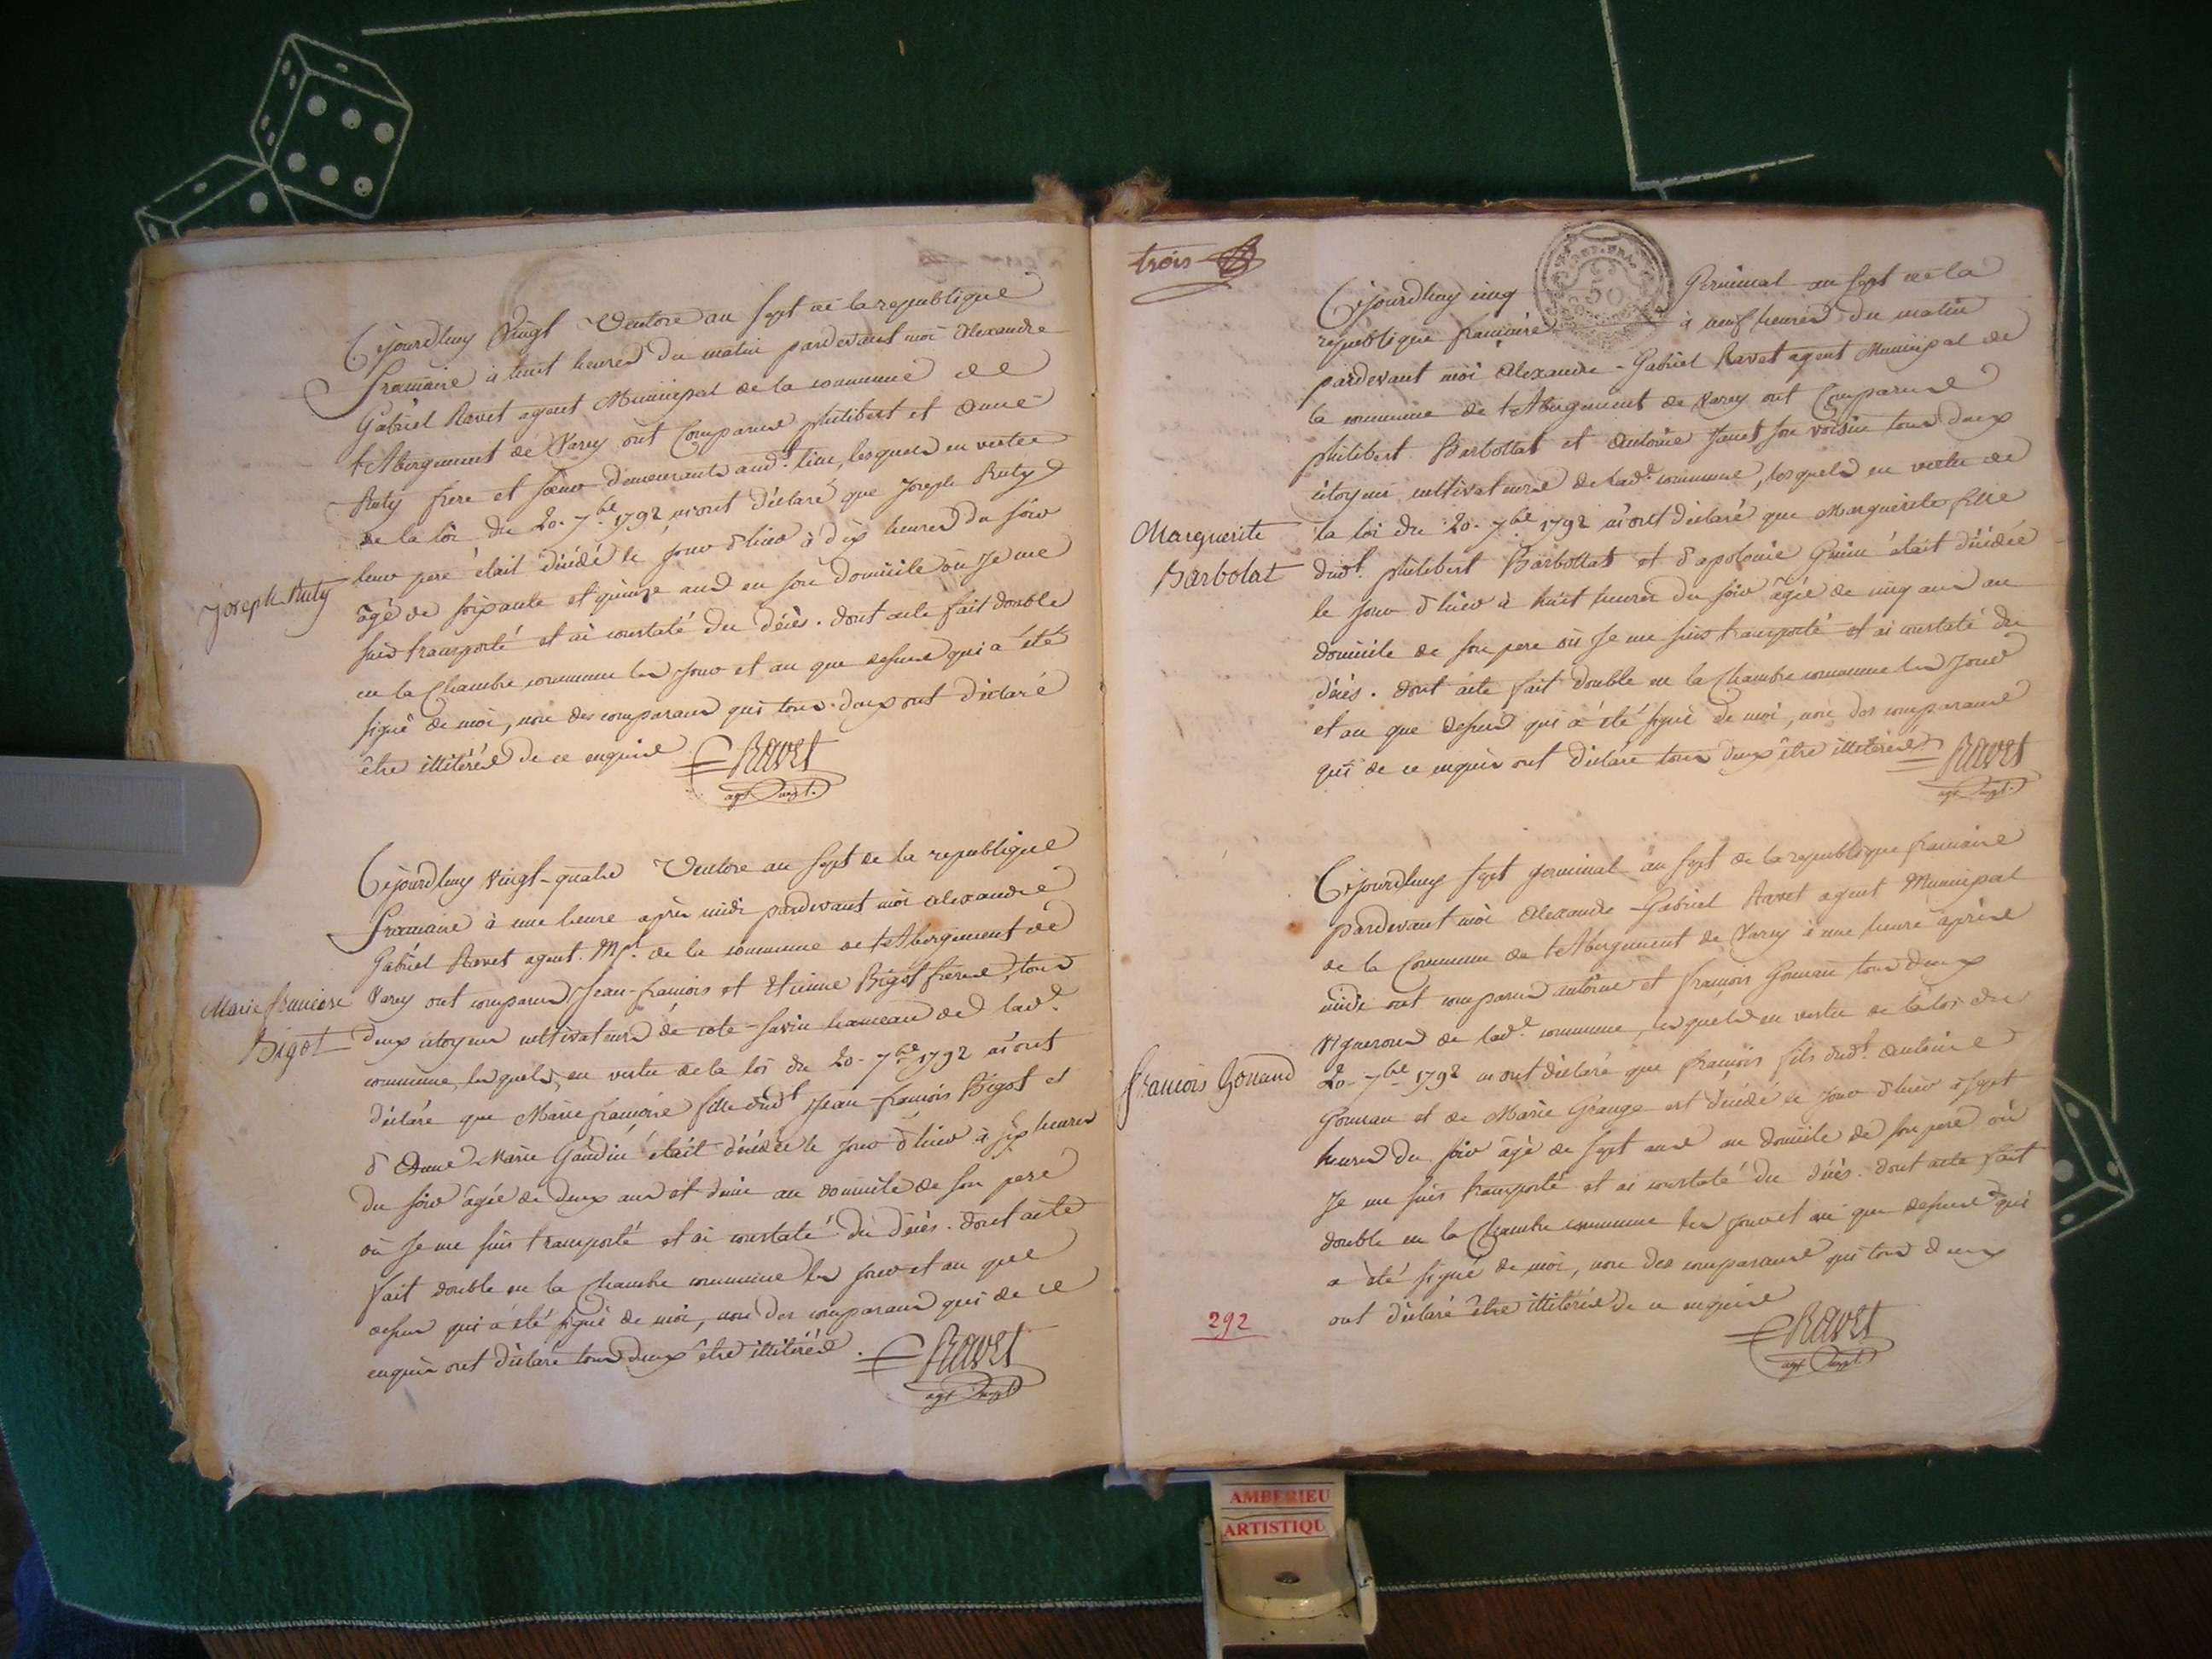 Cejourdhuy Vingt Ventose an sept de la republique
francaise à huit heures du matin pardevant moi Alexandre
Gabriel Ravet agent Municipal de la commune de
l'Abergement de Varey ont Comparus philibert et Anne
Ruty frere et soeur demeurants aud.t lieu, lesquels en vertu
de la loi du 20. 7.bre 1792 m'ont déclaré que Joseph Ruty
leur pere était décédé le jour d'hier à dix heures du soir
Joseph Ruty
âgé de soixante et quinze ans en son domicile où Je me
suis transporté et ai constaté du décès. dont acte fait double
en la Chambre commune les jour et an que dessus qui a été
signé de moi, non des comparans qui tous deux ont déclaré
être illitérés de ce enquis
Ravet
agt mpl.
Cejourdhuy vingt-quatre Ventose an sept de la republique
francaise à une heure après midi pardevant moi alexandre
Gabriel Ravet agent. Mpl. de la commune de l'Abergement de
Marie francoise
Bigot
Varey ont comparus Jean-francois et Etienne Bigot freres, tous
deux citoyens cultivateurs de cote-savin hameau de lad.e
commune, lesquels, en vertu de la loi du 20. 7.bre 1792 m'ont
déclaré que Marie francoise fille dud.t Jean francois Bigot et
d'Anne Marie Gaudin était décédée le jour d'hier à six heures
du soir âgée de deux ans et demi au domicile de son pere
où Je me suis transporté et ai constaté du décès. dont acte
fait double en la Chambre commune les jour et an que
dessus qui a été signé de moi, non des comparans qui de ce
enquis ont déclaré tous deux être illitérés.
Ravet
agt mpl
trois
50
Cejourdhuy cinq Germinal an sept de la
republique francaise à neuf heures du matin
pardevant moi Alexandre-Gabriel Ravet agent Municipal de
la commune de l'Abergement de Varey ont Comparus
philibert Barbollat et Antoine Janet son voisin tous deux
citoyens cultivateurs de lad.e commune, lesquels en vertu de
Marguerite
Barbolat
la loi du 20. 7.bre 1792 m'ont déclaré que Marguerite fille
dud.t philibert Barbollat et d'apolonie était décédée
le jour d'hier à huit heures du soir âgée de cinq ans au
domicile de son pere où Je me suis transporté et ai constaté du
décès. dont acte fait double en la Chambre commune les Jour
et an que dessus qui a été signé de moi, non des comparans
qui de ce enquis ont déclaré tous deux être illitérés
Ravet
agt mpl.
Cejourdhuy sept germinal an sept de la republique francaise
pardevant moi Alexandre-Gabriel Ravet agent Municipal
de la Commune de l'Abergement de Varey à une heure après
midi ont comparus antoine et françois Gonnan tous deux
vignerons de lad.e commune, lesquels en vertu de la loi du
francois Gonand
20. 7.bre 1792 m'ont déclaré que françois fils dud.t Antoine
Gonnan et de Marie Grange est décédé le jour d'hier à sept
heures du soir âgé de sept ans au domicile de son pere où
Je me suis transporté et ai constaté du décès. dont acte fait
double en la Chambre commune les jour et an que dessus qui
a été signé de moi, non des comparans qui tous deux
ont déclaré être illitérés de ce enquis
292
Ravet
agt mpl.
AMBERIEU
ARTISTIQU